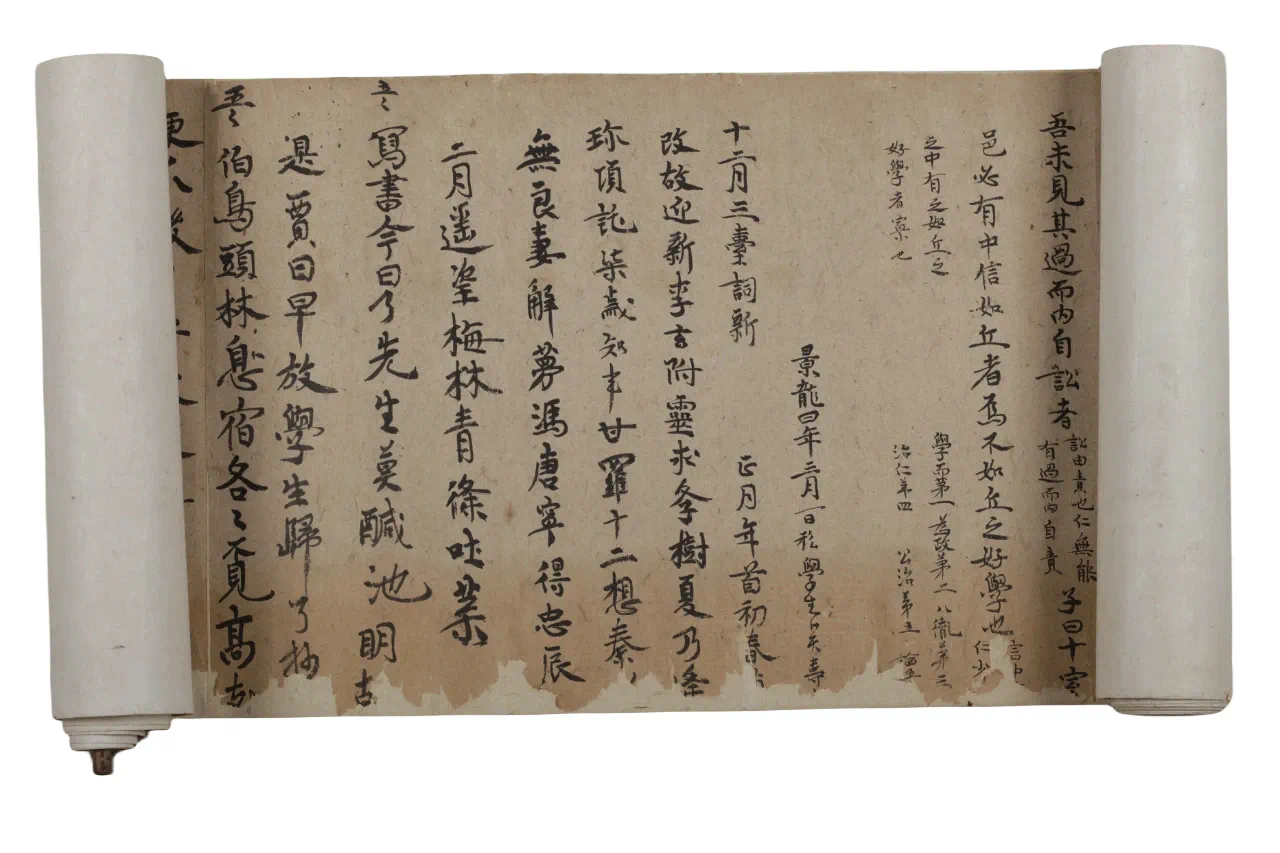 吾未見其過而内自訟者
訟由責也仁無能
有過而内自責
子曰十室
邑必有中信如丘者焉不如丘之好學也
信中
仁少
之中有之如丘之
好學者寡也
學而第一 為政第二 八佾第三
治仁第四 公冶第五
景龍四年三月一日私學生卜天壽
十二月三臺詞新 正月年首初春
改故迎新李玄附靈求學樹夏乃逢
珎項託柒歲知事甘羅十二想秦
無良妻解夢馮唐寧得忠辰
二月遥望梅林青條吐葉
寫書今日了先生莫醎池明
是賈日早放學生歸
伯鳥頭林息宿各〻覓高